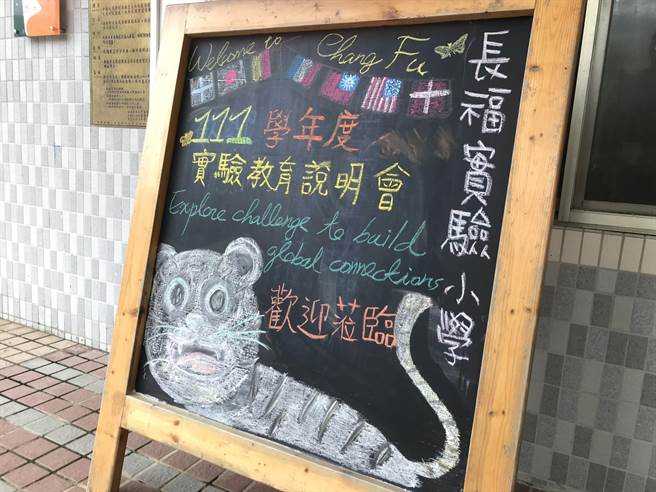 Welcome to Chang Fu
長福實驗小學
111 學年度
實驗教育說明會
Explore challenge to build
global connections
歡迎蒞臨